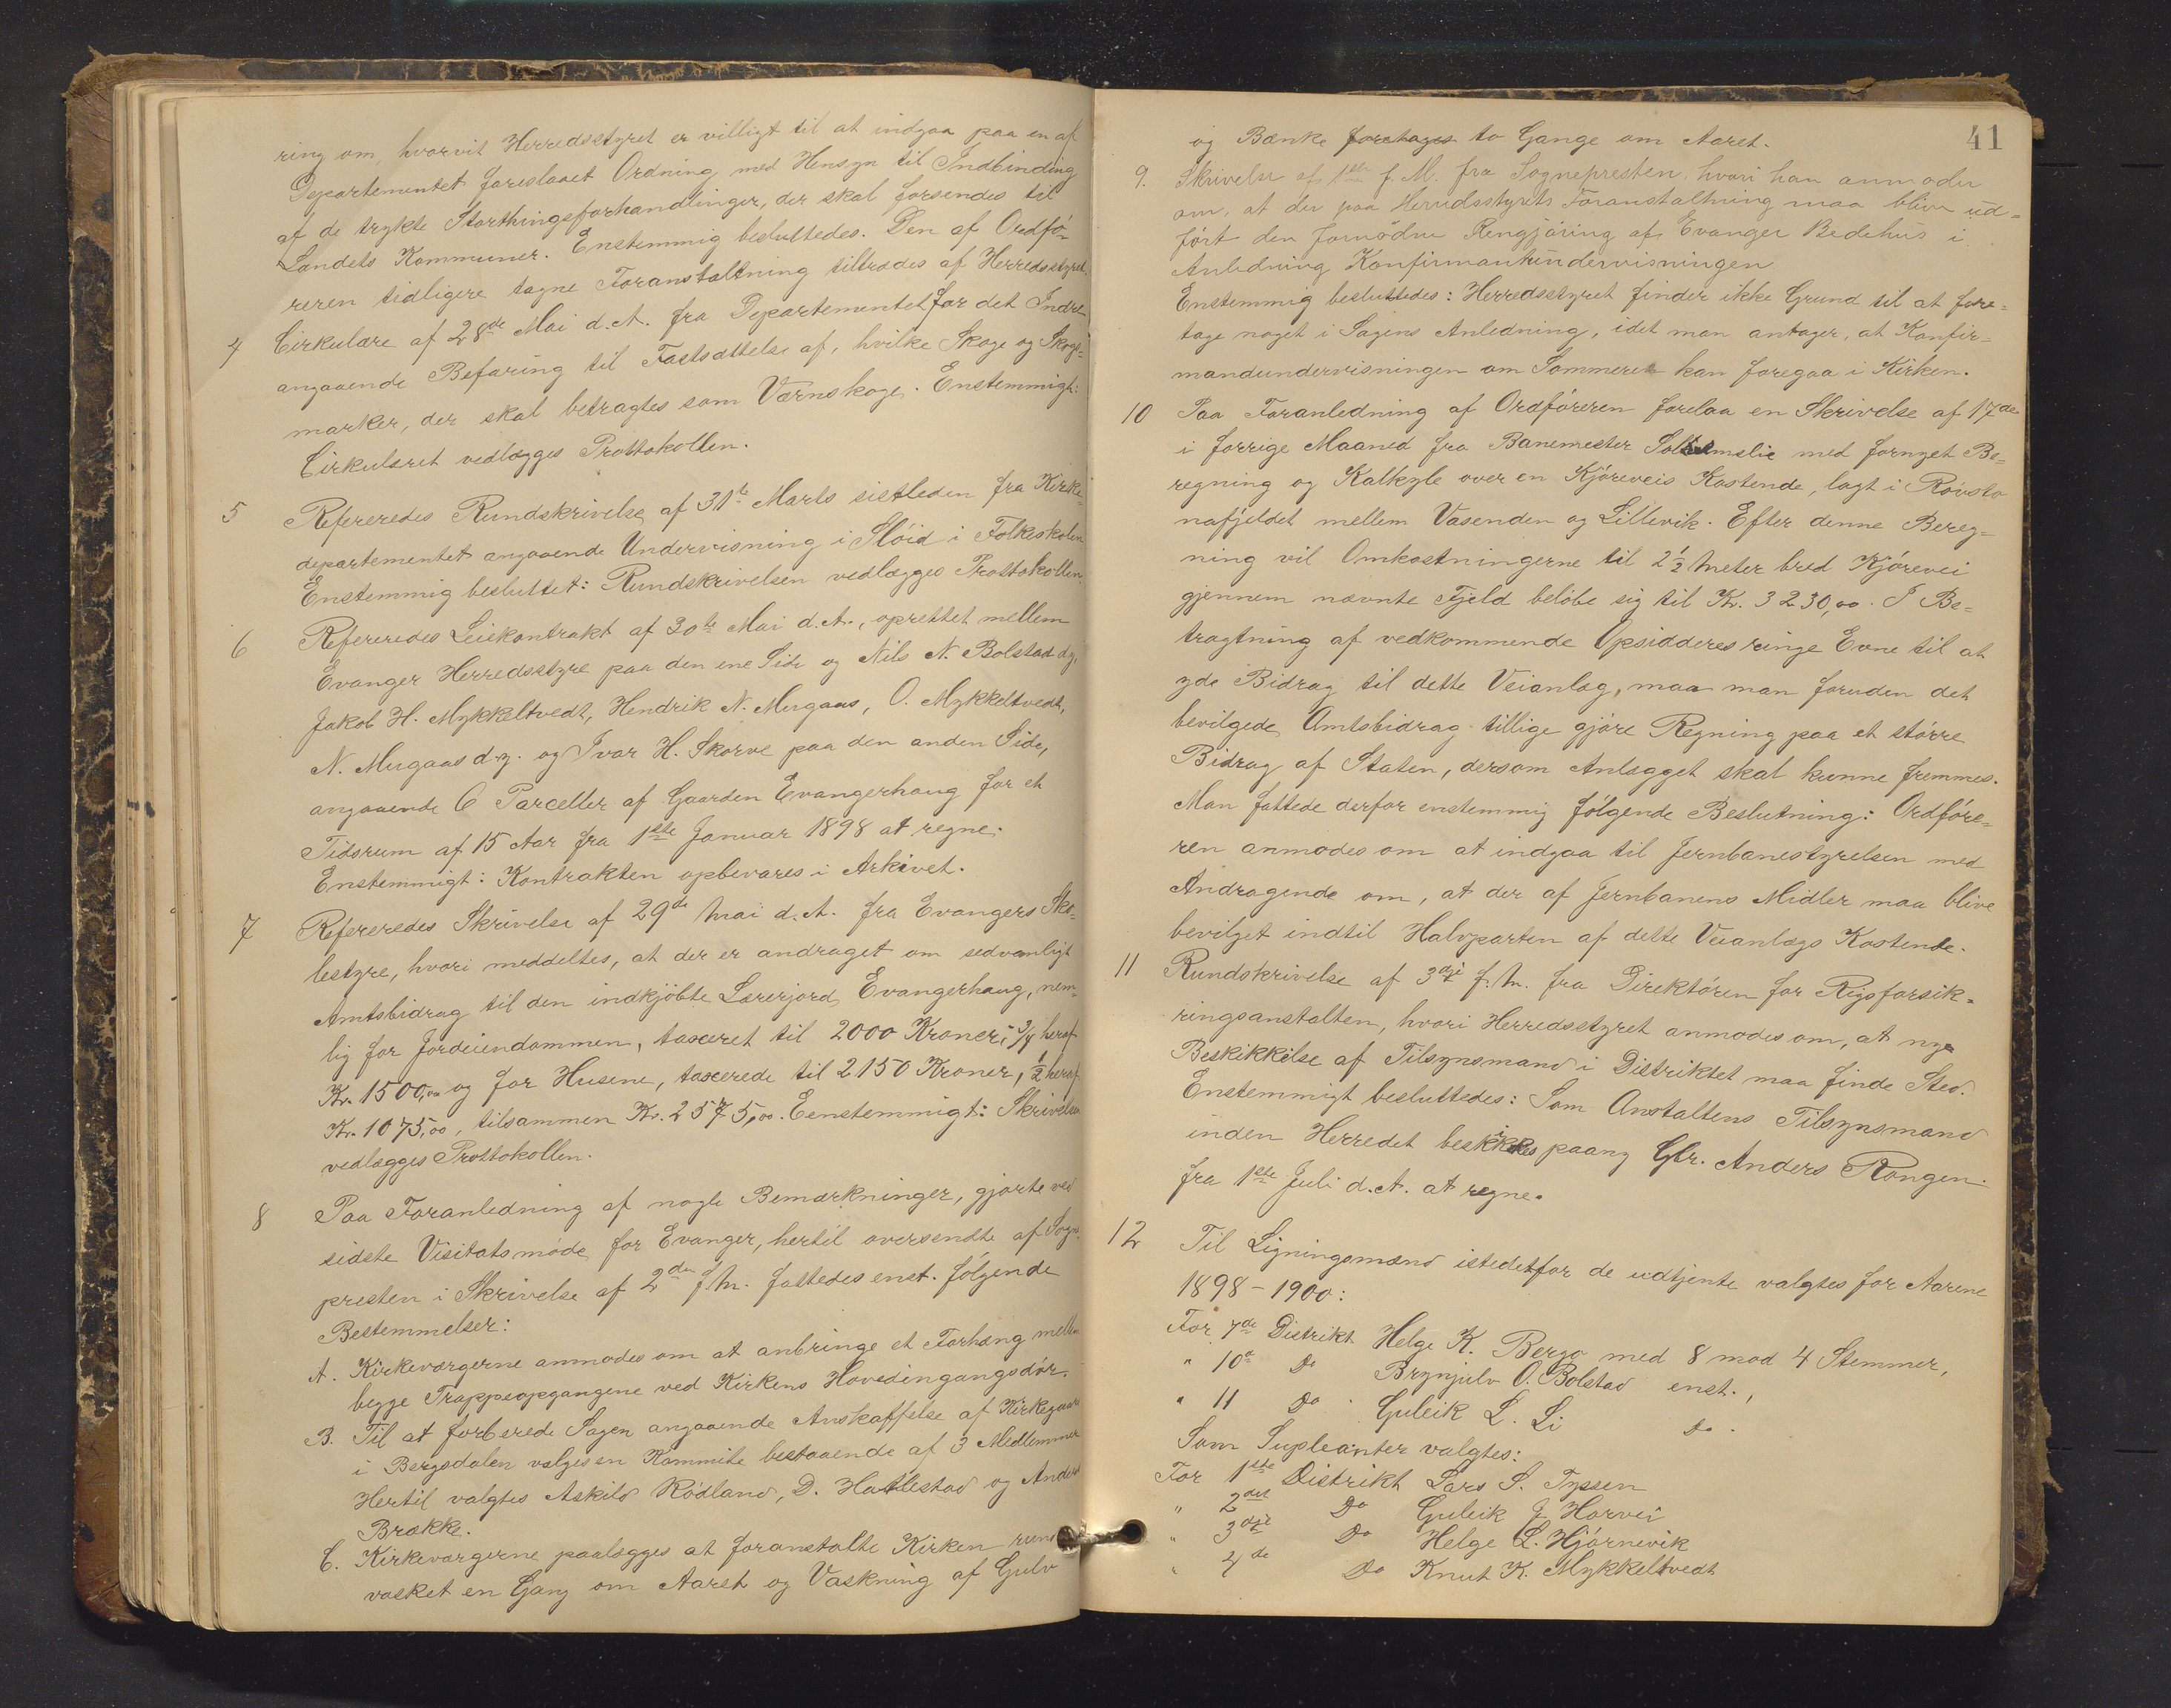 ring om, hvorvit Herredsstyret er villigt til at indgaa paa en af
Departementet foreslaaet Ordning med Hensyn til Indbinding
af de trykte Storthingsforhandlinger, der skal forsendes til
Landets Kommuner. Enstemmig besluttedes. Den af Ordfö-
reren tidligere tagne Foranstaltning tiltrædes af Herredsstyret.
4 Cirkulære af 28de Mai d.A. fra Departementet for det Indre
angaaende Befaring til Fastsættelse af, hvilke Skoge og Skog-
marker, der skal betragtes som Værnskoge. Enstemmigt:
Cirkulæret vedlægges Prottokollen.
5 Refereredes Rundskrivelse af 31te Marts sistleden fra Kirke-
departementet angaaende Undervisning i Slöid i Folkeskolen
Enstemmig besluttet: Rundskrivelsen vedlægges Prottokollen.
6 Refereredes Leiekontrakt af 30te Mai d.A., oprettet mellem
Evanger Herredsstyre paa den ene Side og Nils N. Bolstad d.y,
Jakob H. Mykkeltvedt, Hendrik N. Mugaas, O. Mykkeltvedt,
N. Mugaas d.y. og Ivar H. Skorve paa den anden Side,
angaaende 6 Parceller af Gaarden Evangerhaug for et
Tidsrum af 15 Aar fra 1ste Januar 1898 at regne.
Enstemmigt: Kontrakten opbevares i Arkivet.
7 Refereredes Skrivelse af 29de Mai d.A. fra Evangers Sko-
lestyre, hvori meddeltes, at der er andraget om sedvanligt
Amtsbidrag til den indkjöbte Lærerjord, Evangerhaug, nem-
lig for Jordeiendommen, taxeret til 2000 Kroner, 3/4 heraf
Kr. 1500,00 og for Husene, taxerede til 2150 Kroner, 1/2 heraf
Kr. 1075,00, tilsammen Kr. 2575,00. Eenstemmigt: Skrivelsen
vedlægges Prottokollen.
8 Paa Foranledning af nogle Bemærkninger, gjorte ved
sidste Visitatsmöde for Evanger, hertil oversendte af Sogne-
presten i Skrivelse af 2den f.M. fattedes enst. fölgende
Bestemmelser:
A. Kirkeværgerne anmodes om at anbringe et Forhæng mellem
begge Trappeopgangene ved Kirkens Hovedingangsdör.
B. Til at forberede Sagen angaaende Anskaffelse af Kirkegaard
i Bergsdalen vælges en Kommite bestaaende af 3 Medlemmer
Hertil valgtes Askild Rödland, D. Hatlestad og Anders
Brække.
C. Kirkeværgerne paalægges at foranstalte Kirken rund-
vasket en Gang om Aaret og Vaskning af Gulv
41
og Bænke foretages to Gange om Aaret.
9. Skrivelse af 1ste f.M. fra Sognepresten, hvori han anmoder
om, at der paa Herredsstyrets Foranstaltning maa blive ud-
fört den fornödne Rengjöring af Evanger Bedehus i
Anledning Konfirmantundervisningen
Enstemmig besluttedes: Herredsstyret finder ikke Grund til at fore-
tage noget i Sagens Anledning, idet man antager, at Konfir-
mandundervisningen om Sommeren kan foregaa i Kirken.
10 Paa Foranledning af Ordföreren forelaa en Skrivelse af 17de
i forrige Maaned fra Banemester med fornyet Be-
regning og Kalkyle over en Kjöreveis Kostende, lagt i Rövsto
nafjeldet mellem Vasenden og Lillevik. Efter denne Bereg-
ning vil Omkostningerne til 2 1/2 Meter bred Kjörevei
gjennem nævnte Fjeld belöbe sig til Kr. 3230,00. I Be-
tragtning af vedkommende Opsidderes ringe Evne til at
yde Bidrag til dette Veianlæg, maa man foruden det
bevilgede Amtsbidrag tillige gjöre Regning paa et större
Bidrag af Staten, dersom Anlægget skal kunne fremmes.
Man fattede derfor enstemmig fölgende Beslutning: Ordföre-
ren anmodes om at indgaa til Jernbanestyrelsen med
Andragende om, at der af Jernbanens Midler maa blive
bevilget indtil Halvparten af dette Veianlægs Kostende.
11 Rundskrivelse af 3dje f.M. fra Direktören for Rigsforsik-
ringsanstalten, hvori Herredsstyret anmodes om, at nye
Beskikkelse af Tilsynsmand i Distriktet maa finde Sted.
Enstemmigt besluttedes: Som Anstaltens Tilsynsmand
inden Herredet beskikkes paany Gbr. Anders Rongen
fra 1ste Juli d.A. at regne.
12 Til Ligningsmænd istedetfor de udtjente valgtes for Aarene
1898-1900:
For 7de Distrikt Helge K. Bergo med 8 mod 4 Stemmer,
" 10de Do Brynjulv O. Bolstad enst.,
" 11 Do Guleik L. Li Do.
Som Supleanter valgtes:
For 1ste Distrikt Lars S. Tyssen
" 2det Do Guleik J Horvei
" 3dje Do Helge L. Hjörnevik
" 4de Do Knut K. Mykkeltvedt